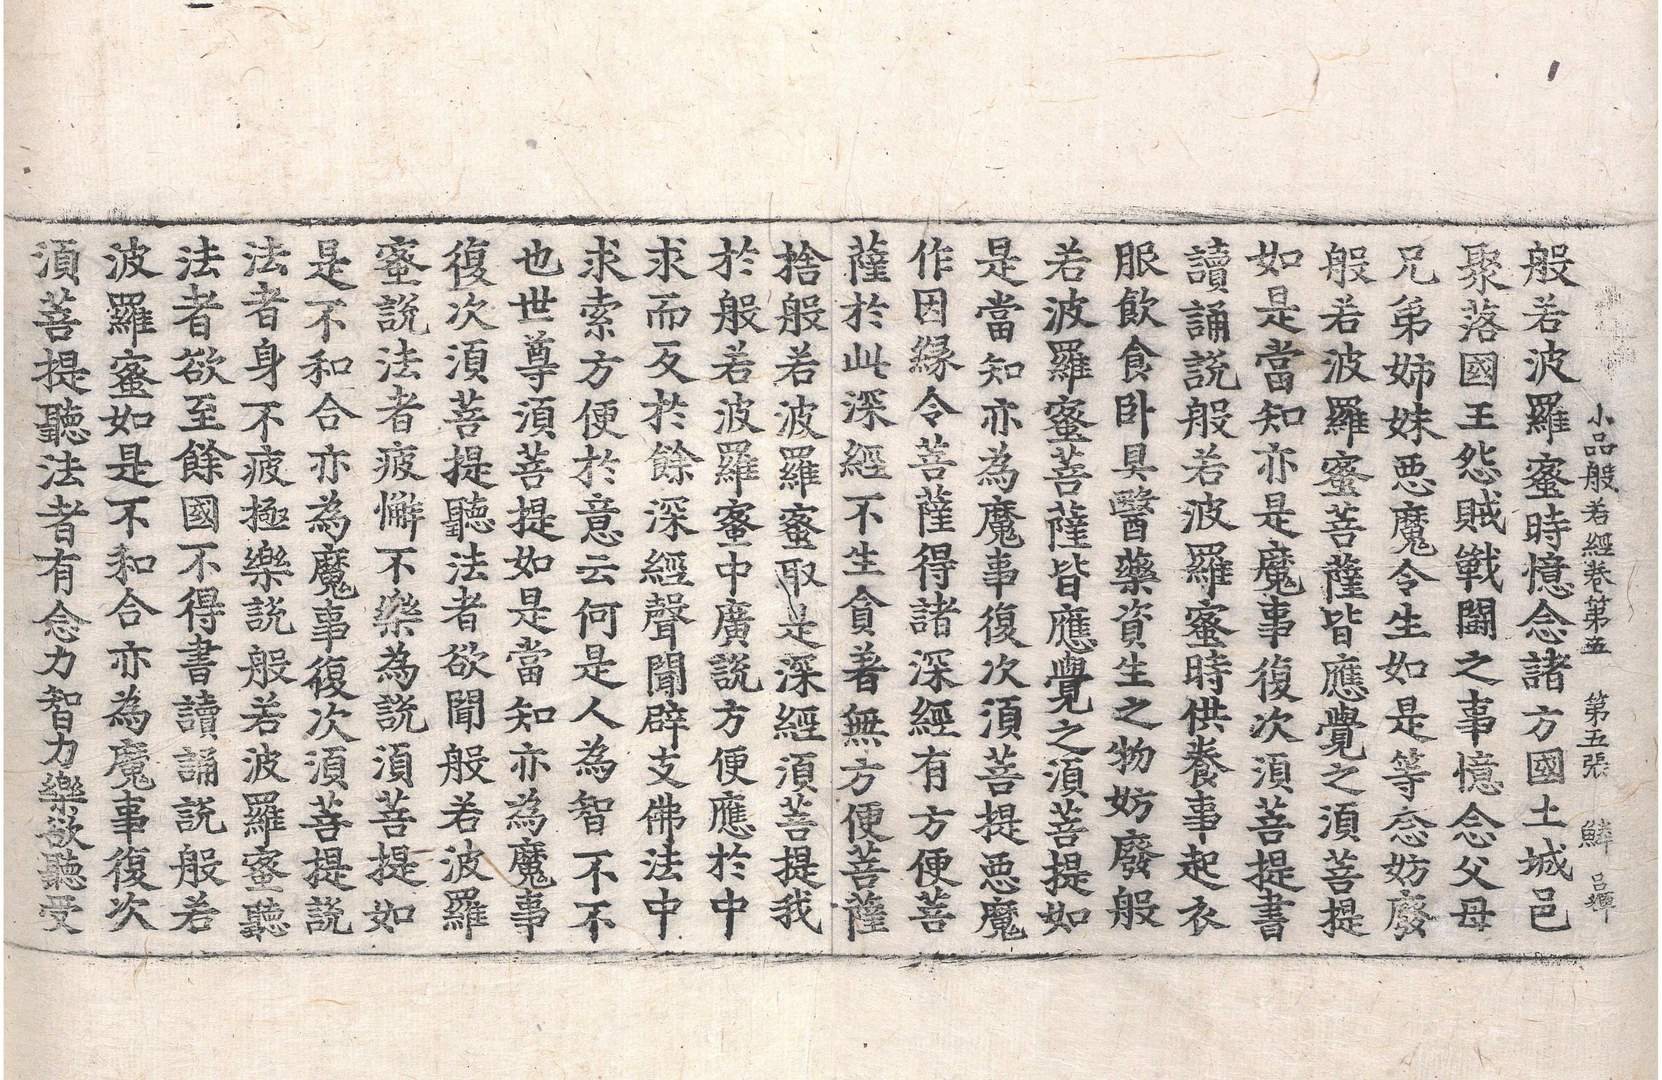 小品般若經卷第五 第五張 鱗
般若波羅蜜時憶念諸方國土城邑
聚落國王怨賊戰鬪之事憶念父母
兄弟姉妹惡魔令生如是等念妨廢
般若波羅蜜菩薩皆應覺之湏菩提
如是當知亦是魔事復次湏菩提書
讀誦說般若波羅蜜時供養事起衣
服飮食卧具醫藥資生之物妨廢般
若波羅蜜菩薩皆應覺之湏菩提如
是當知亦為魔事復次湏菩提惡魔
作因緣令菩薩得諸深經有方便菩
薩於此深經不生貪著無方便菩薩
捨般若波羅蜜取是深經湏菩提我
於般若波羅蜜中廣說方便應於中
求而反於餘深經聲聞辟支佛法中
求索方便於意云何是人為智不不
也世尊湏菩提如是當知亦為魔事
復次湏菩提聽法者欲聞般若波羅
蜜說法者疲懈不樂為說湏菩提如
是不和合亦為魔事復次湏菩提說
法者身不疲極樂說般若波羅蜜聽
法者欲至餘國不得書讀誦說般若
波羅蜜如是不和合亦為魔事復次
湏菩提聽法者有念力智力樂欲聽受